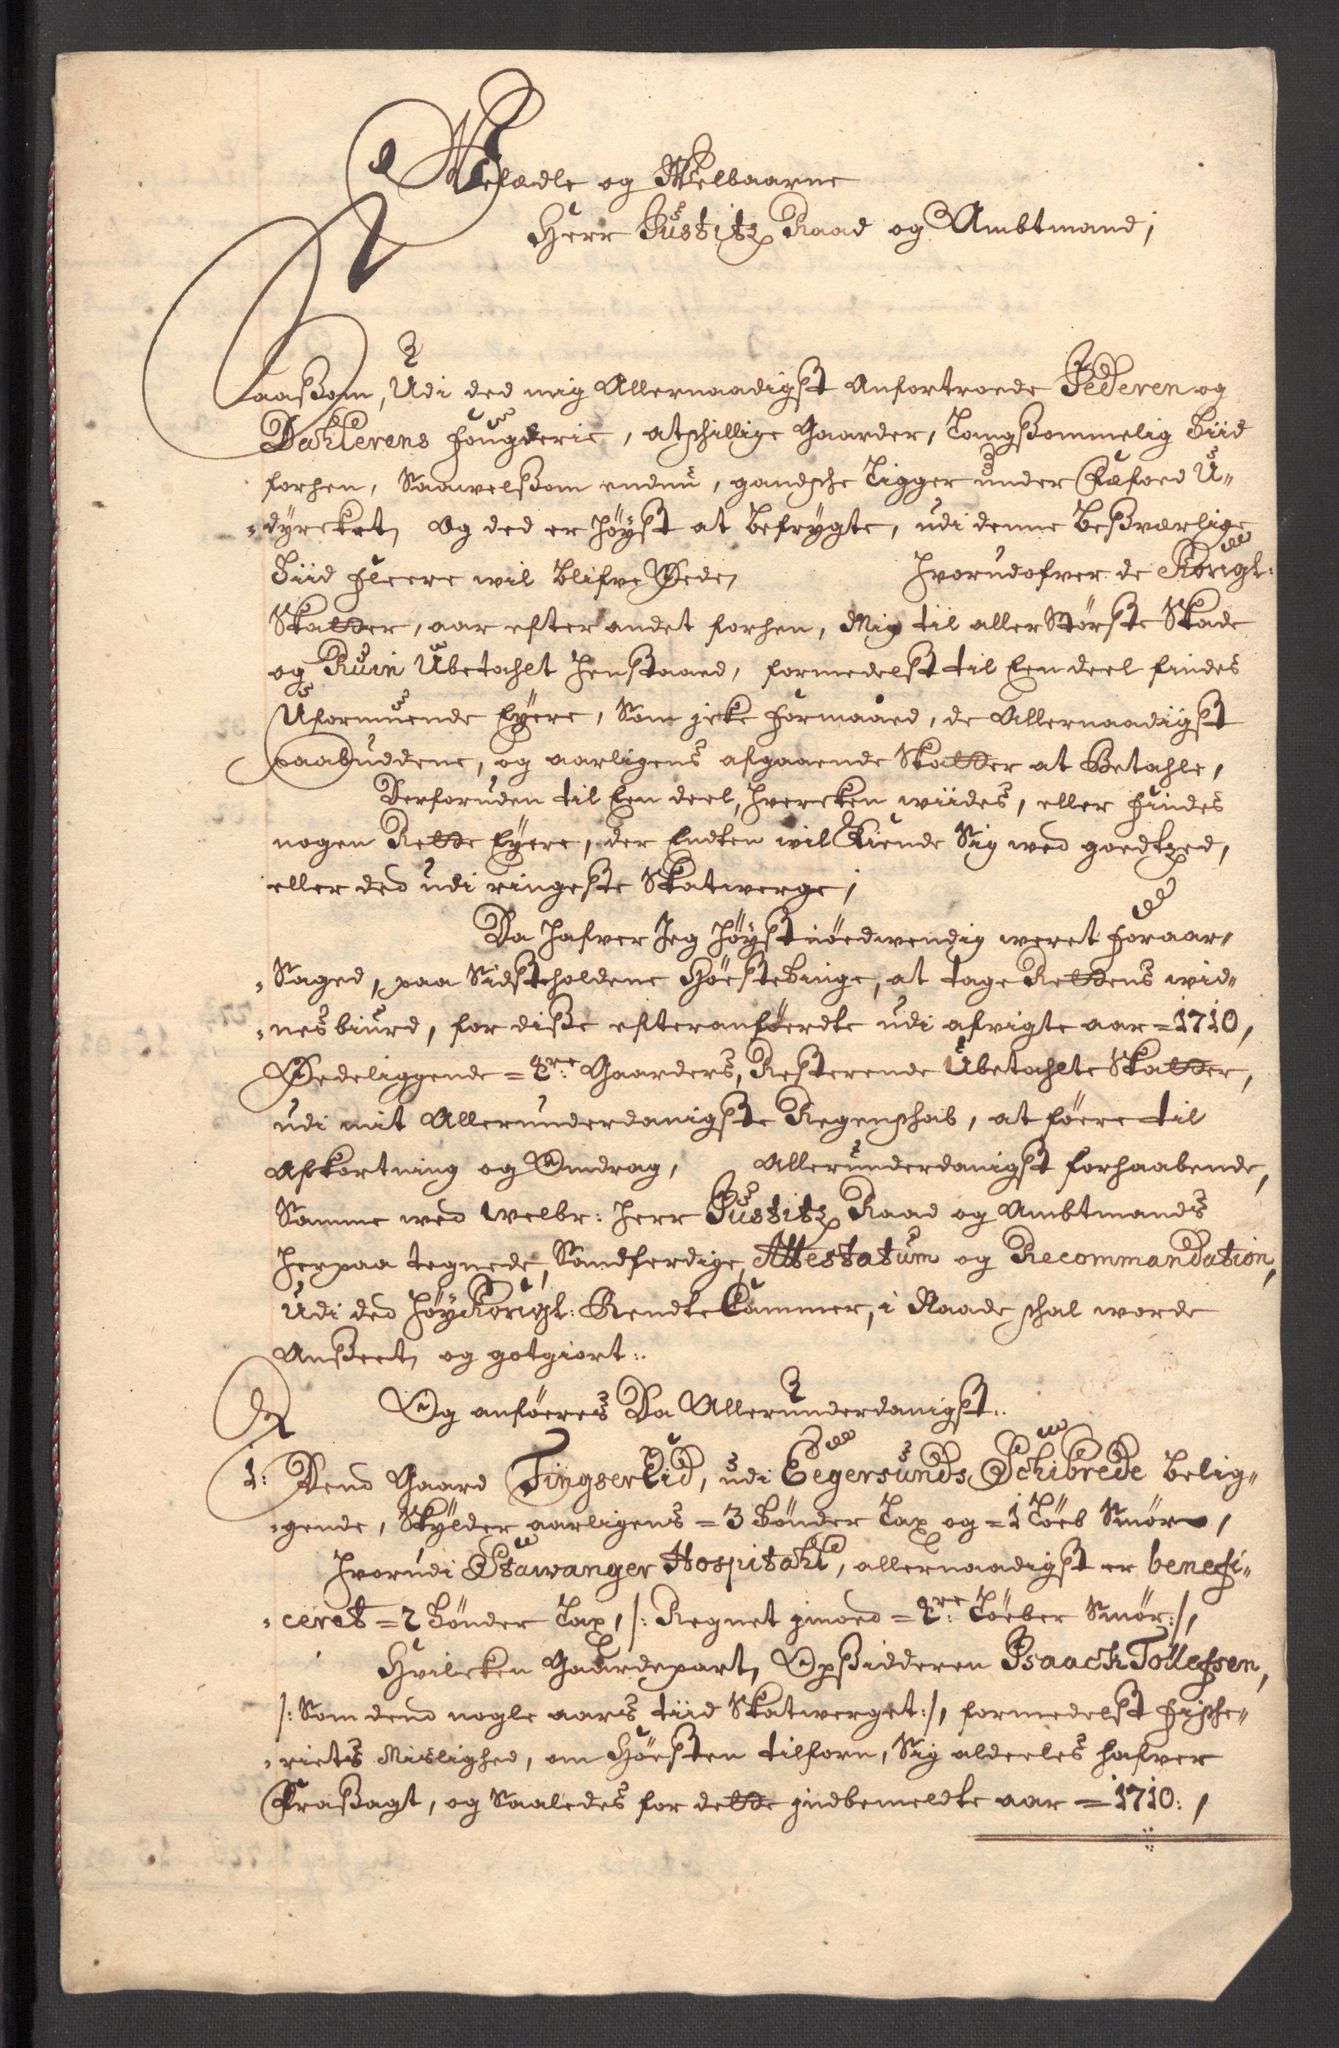 Velædle og Welbaarne
Herr Justitz Raad og Ambtmand;
Saasom, Udi ded mig Allernaadigst Anfortroede Jederen og
Dahlerens fougderie, atschillige Gaarder, Langsommelig Tiid
forhen, Saawelsom endnu, gandsche Ligger under Fæfoed U-
-dyrcket, Og ded er Høyst at befrygte, udi denne besværlige
Tiid fleere wil blifve Øede, Hvorudofver de Kongl:
Skatter, aar efter andet forhen, Mig til aller Største Skade
og Ruin Ubetahlt Henstaaed, formedelst til Een deel findes
Uformuende Eyere, Som icke formaaed, de Allernaadigst
paabuddene, og aarligens afgaaende Skatter at Betahle,
Derforuden til Een deel, Hvercken wiides, eller findes
nogen Rette Eyere, der Endten wil Kiende Sig wed goedtzed,
eller ded udi ringeste Skatwerge;
Da Hafver Jeg Høystnöedwendig weret foraar-
-Saged, paa Sidstholdene Høstetinge, at tage Rettens wid-
-nesbiurd, for disse efteranförte udi afvigte aar = 1710,
Øedeliggende = 2re: Gaarders, Resterende Ubetahlte Skatter,
udi mit Allerunderdanigste Regenschab, at föere til
Afkortning og Omdrag, Allerunderdanigst forhaabende,
Samme wed Welbr: Herr Justitz Raad og Ambtmands
Herpaa tegnede, Sandferdige, Attestatum og Recommandation,
Udi ded HøyKongl: RendteCammer, i Naade schal worde
Anseet, og gotgiort:.
Og anföeres Da Allerunderdanigst:.
1: Dend Gaard Tingserlid, udi Eegersunds Schibrede belig-
-gende, Skylder aarligens = 3 Tönder Lax og = 1 Löeb Smör,
Hvorudi Stawanger Hospitahl, allernaadigst er benefi-
-ceret = 2 Tönder Lax, /: Regnet imoed = 2re: Löeber Smör:/,
Hvilcken Gaardepart, Opsidderen Isaach Tollefsen,
/: Som dend nogle aars tiid Skatwerget:/, formedelst fische-
-riets Mislighed, om Höesten tilforn, Sig alderles hafver
Frasagt, og Saaledes for dette indbemeldte aar = 1710:,